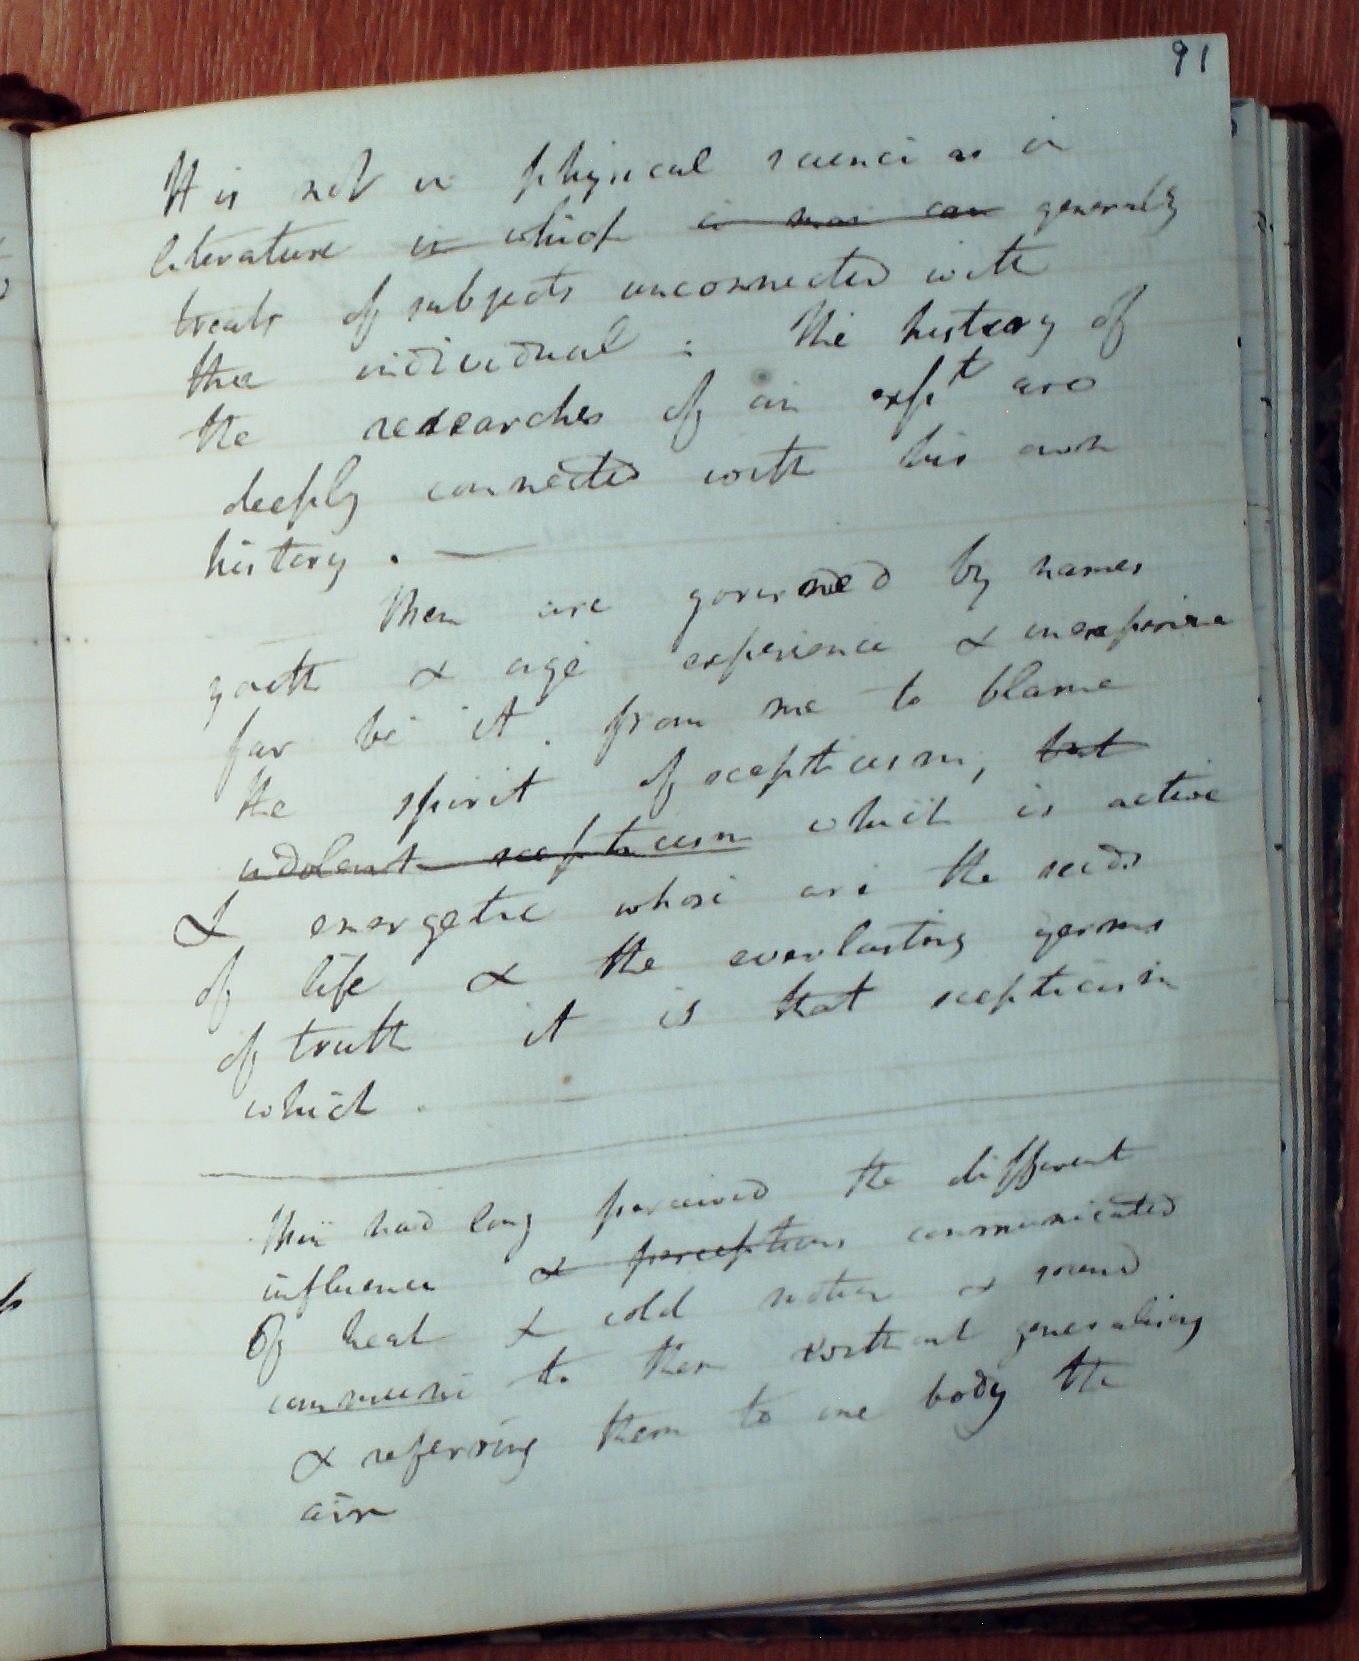 91
It is not in physical science as in
literature in which is man can generally
treats of subjects unconnected with
the individual : The history of
the researches of an expt are
deeply connected with his own
history . —
Men are governed by names
youth & age experience & inexperience
far be it from me to blame
the spirit of scepticism, but
indolent scepticism which is active
& energetic whose are the seeds
of life & the everlasting germs
of truth it is that scepticism
which .
Men had long perceived the different
influence & perceptions communicated
Of heat & cold motion & sound
communi to them without generalising
& referring them to one body the
air